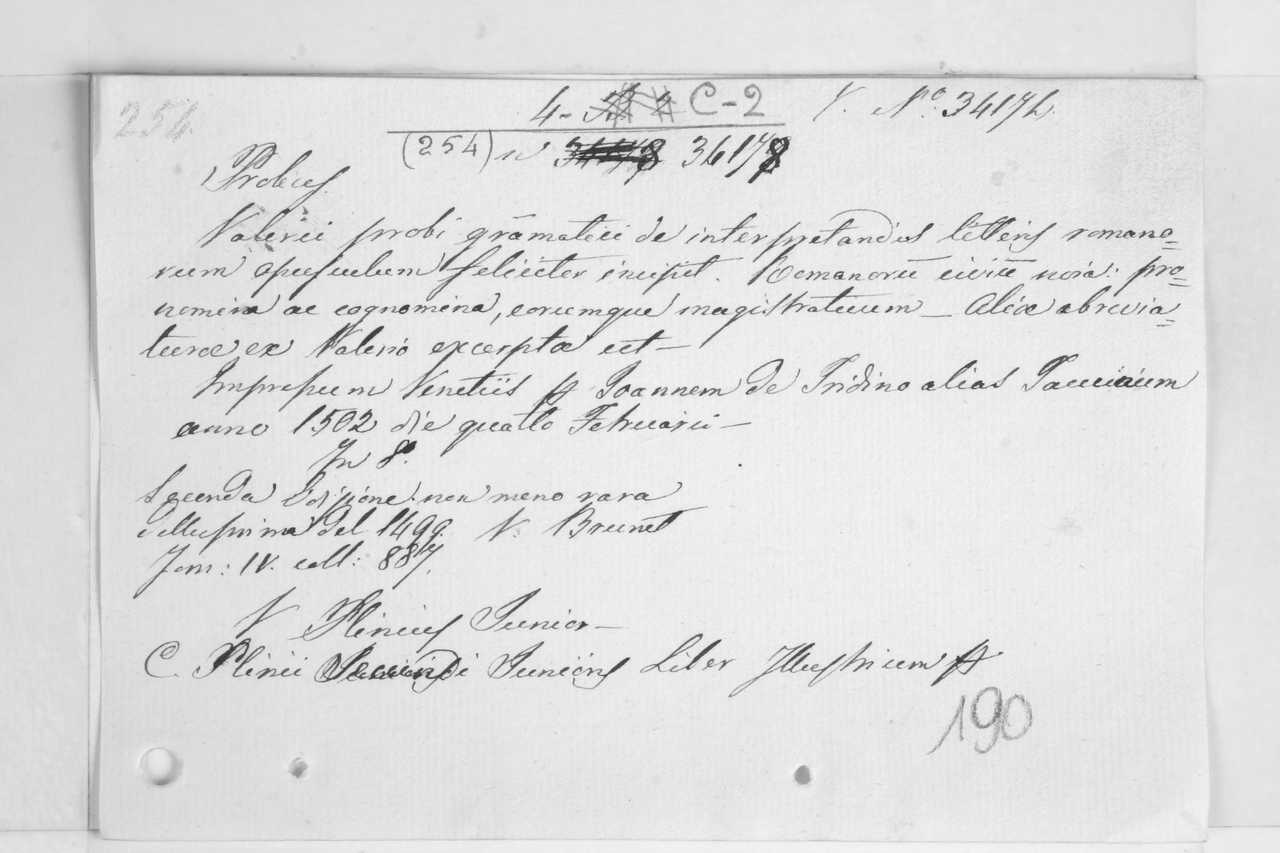 254
4- C-2 V. Nº 34174
(254) nº 36178
Probus
Valerii probi grãmatici de interpretandis litteris romano=
rum opusculum feliciter incipit. Romanorũ civiũ noia: pro=
nomina ac cognomina, eorumque magistratuum — Aliæ abrevia=
turæ ex Valerio excerptæ ect —
Impressum Venetiis p Joannem de Tridino alias Tacuinum
anno 1502 die quarto Februarii —
In 8º
Seconda Edizione non meno rara
della prima del 1499. V. Brunet
Tom: IV. coll: 887.
V Plinius Junior —
C. Plinii Secundi Junioris Liber Illustrium
190